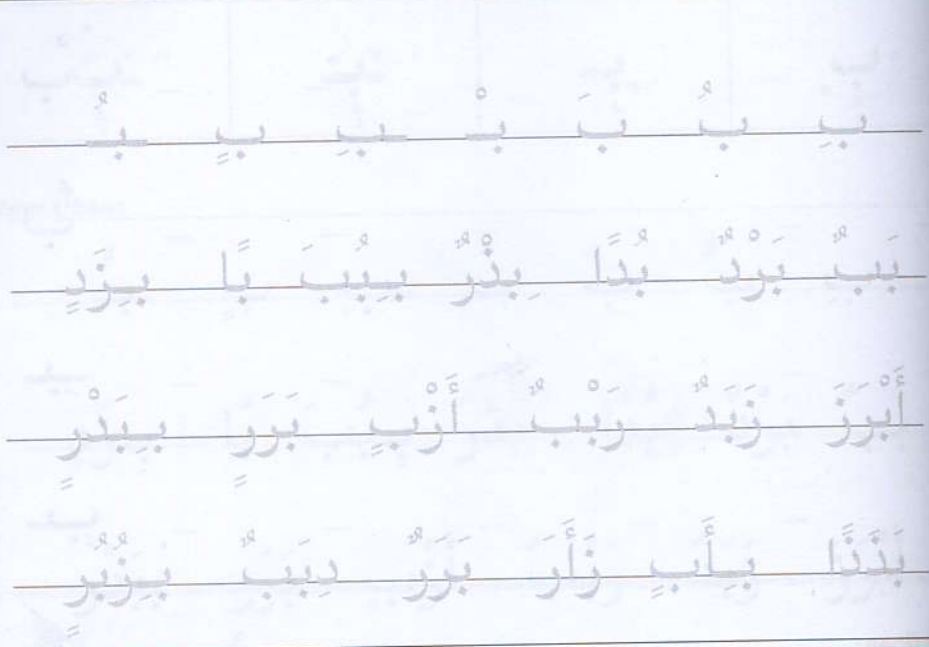 بِ بُ بَ بْـ ـبِـ بٍ ـبُـ
بَبٌ بَرْدٌ بُدًا بِذْرٌ بِبُبَ بًا بِزَدٍ
أَبْرَزَ زَبَدٌ رَبْبٌ أَزْبٍ بَرَرٍ بِبَدْرٍ
بَذَذًا بِأَبٍ زَأَرَ بَرَرٌ دِبَبٌ بِزُبُرٍ